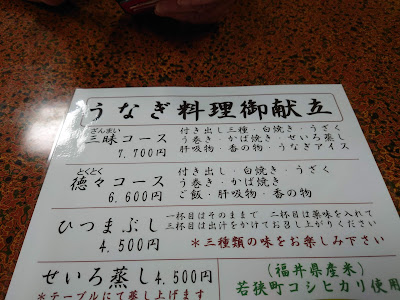 うなぎ料理御献立
ざんまい
三昧コース
7,700円
付き出し三種・白焼き・うざく
う巻き・かば焼き・せいろ蒸し
肝吸物・香の物・うなぎアイス
とくとく
徳々コース
6.600円
付き出し・白焼き・うざく
う巻き・かば焼き
ご飯・肝吸物・香の物
ひつまぶし
4.500円
一杯目はそのままで 二杯目は薬味を入れて
三杯目は出汁をかけてお召し上がりください
*三種類の味をお楽しみ下さい
せいろ蒸し4.500円
*テーブルにて蒸し上げます
(福井県産米)
若狭町コシヒカリ使用